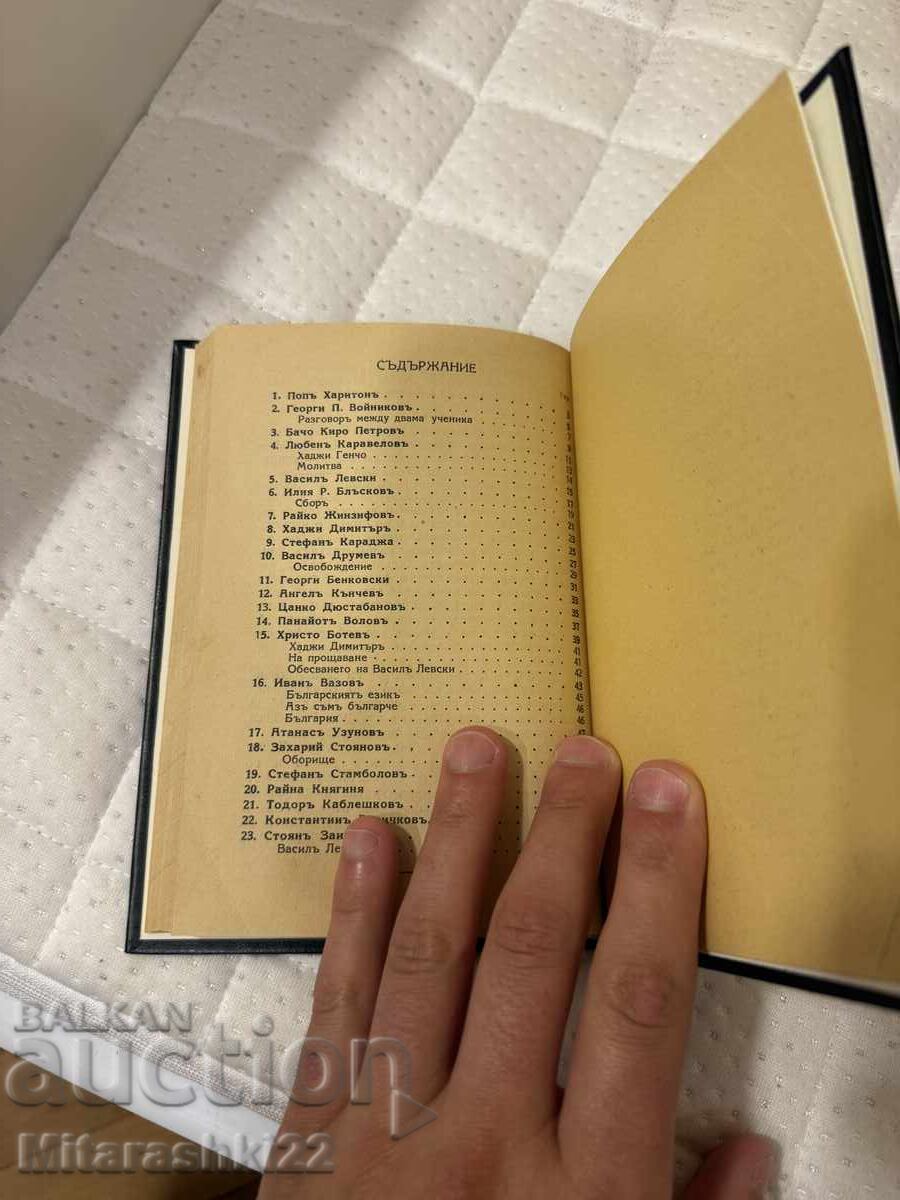 СЪДЪРЖАНИЕ
1. Попъ Харитонъ
2. Георги П. Войниковъ 5
Разговоръ между двама ученика 6
3. Бачо Киро Петровъ 7
4. Любенъ Каравеловъ 9
Хаджи Генчо 11
Молитва 13
5. Василъ Левски 14
6. Илия Р. Блъсковъ 15
Сборъ 17
7. Райко Жинзифовъ 19
8. Хаджи Димитъръ 21
9. Стефанъ Караджа 23
10. Василъ Друмевъ 25
Освобождение 27
11. Георги Бенковски 29
12. Ангелъ Кънчевъ 31
13. Цанко Дюстабановъ 33
14. Панайотъ Воловъ 35
15. Христо Ботевъ 39
Хаджи Димитъръ 41
На прощаване 41
Обесването на Василъ Левски 42
16. Иванъ Вазовъ 43
Българскиятъ езикъ 45
Азъ съмъ българче 46
България 46
17. Атанасъ Узуновъ 47
18. Захарий Стояновъ
Оборище
19. Стефанъ Стамболовъ
20. Райна Княгиня
21. Тодоръ Каблешковъ
22. Константинъ
23. Стоянъ
Василъ
BALKAN
auction
Mitarashki22